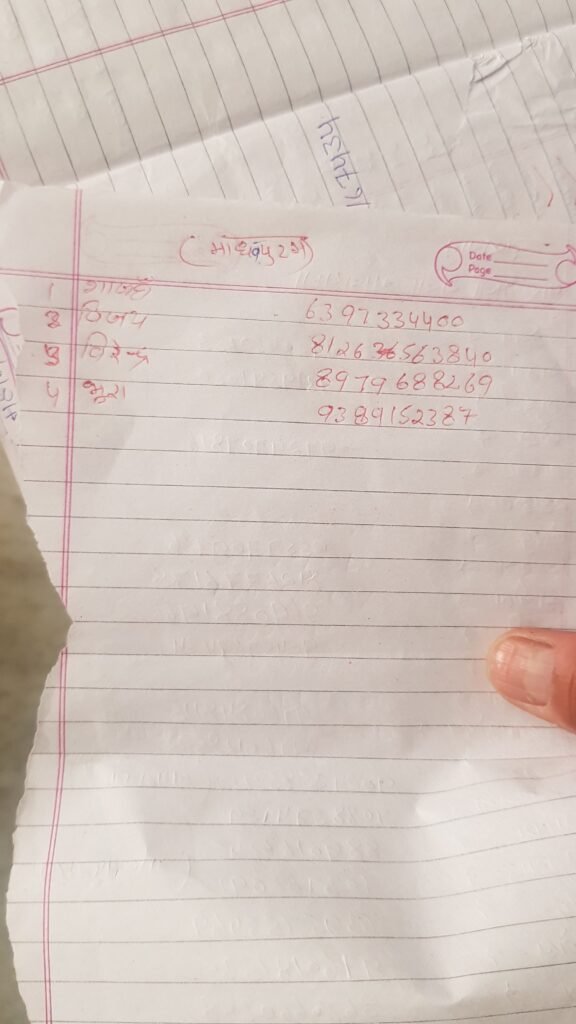 167434
(माधवपुरम)
Date
Page
1
2 विजय 6397334400
3 विरेन्द्र
4 भूरा 8979688269
9389152387